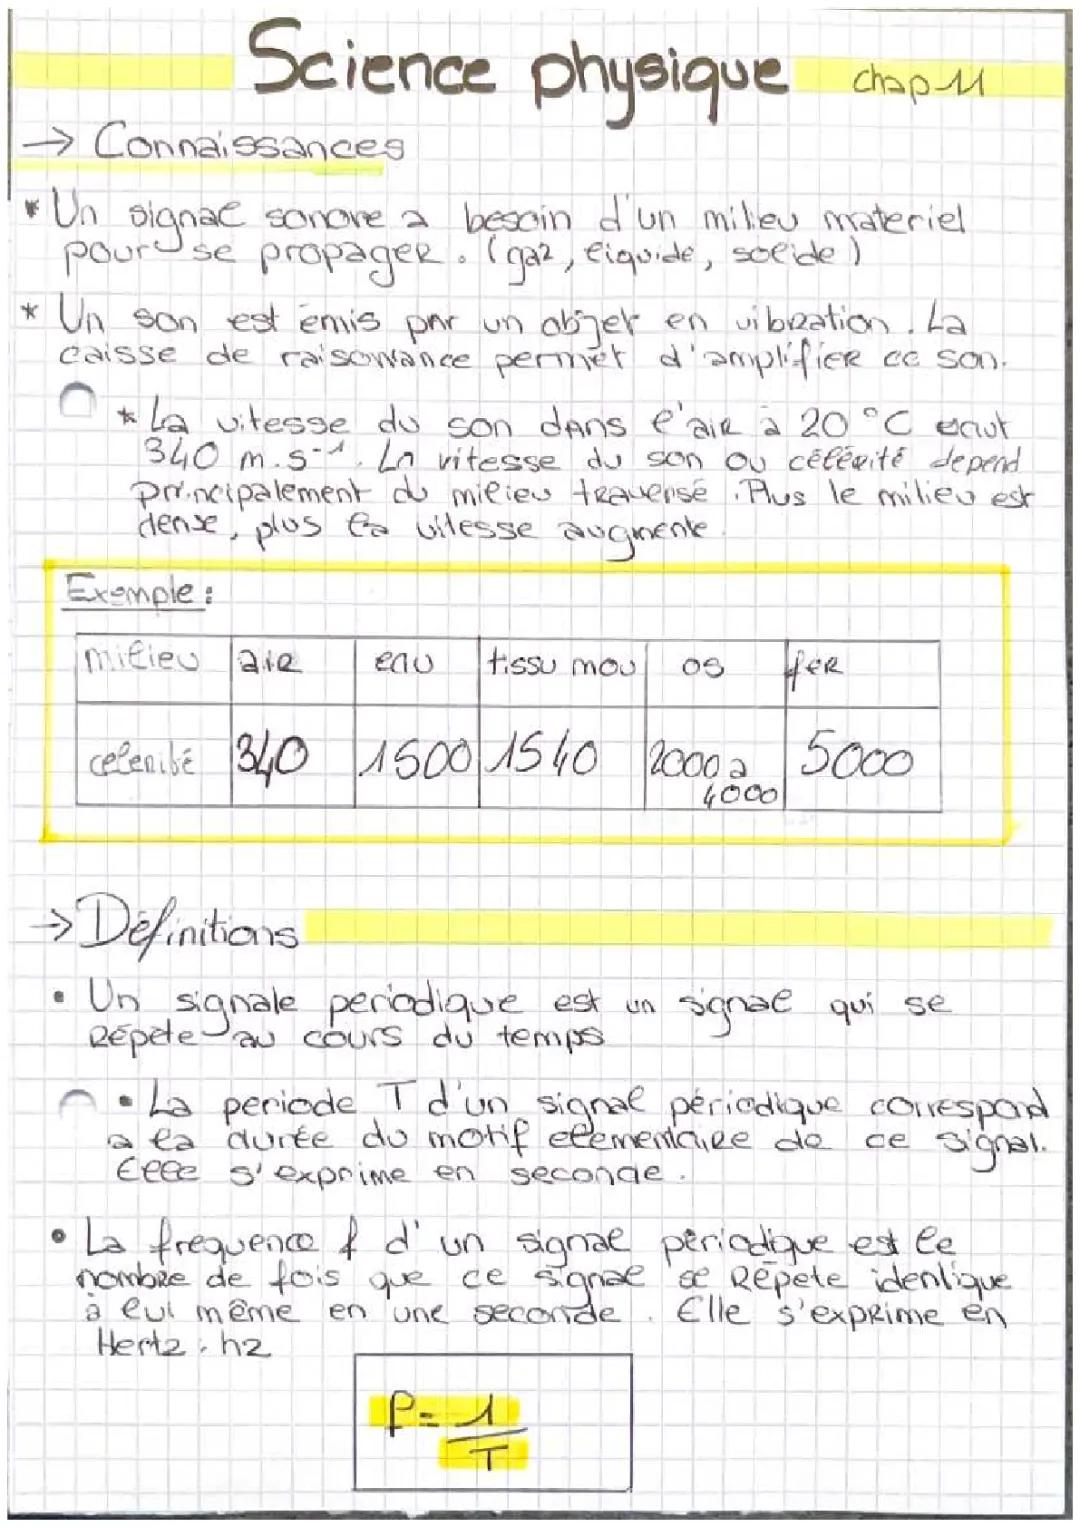 Science physique chap 11
→ Connaissances
* Un signal sonore a besoin d'un milieu materiel
pour se propager. (gaz, liquide, solide)
* Un son est émis par un objet en vibration. La
caisse de raisonnance permet d'amplifier ce son.
* La vitesse du son dans l'air à 20 °C vaut
340 m.s⁻¹. La vitesse du son ou célérité depend
principalement du milieu traversé. Plus le milieu est
dense, plus la vitesse augmente.
Exemple :
milieu air eau tissu mou os fer
celerité 340 1500 1540 2000 a 4000 5000
→ Définitions
• Un signale periodique est un signal qui se
Répete au cours du temps
• La periode T d'un signal périodique correspond
a la durée du motif elementaire de ce signal.
Elle s'exprime en seconde.
• La frequence f d'un signal périodique est le
nombre de fois que ce signal se Répete identique
à lui même en une seconde. Elle s'exprime en
Hertz : hz
f = 1/T